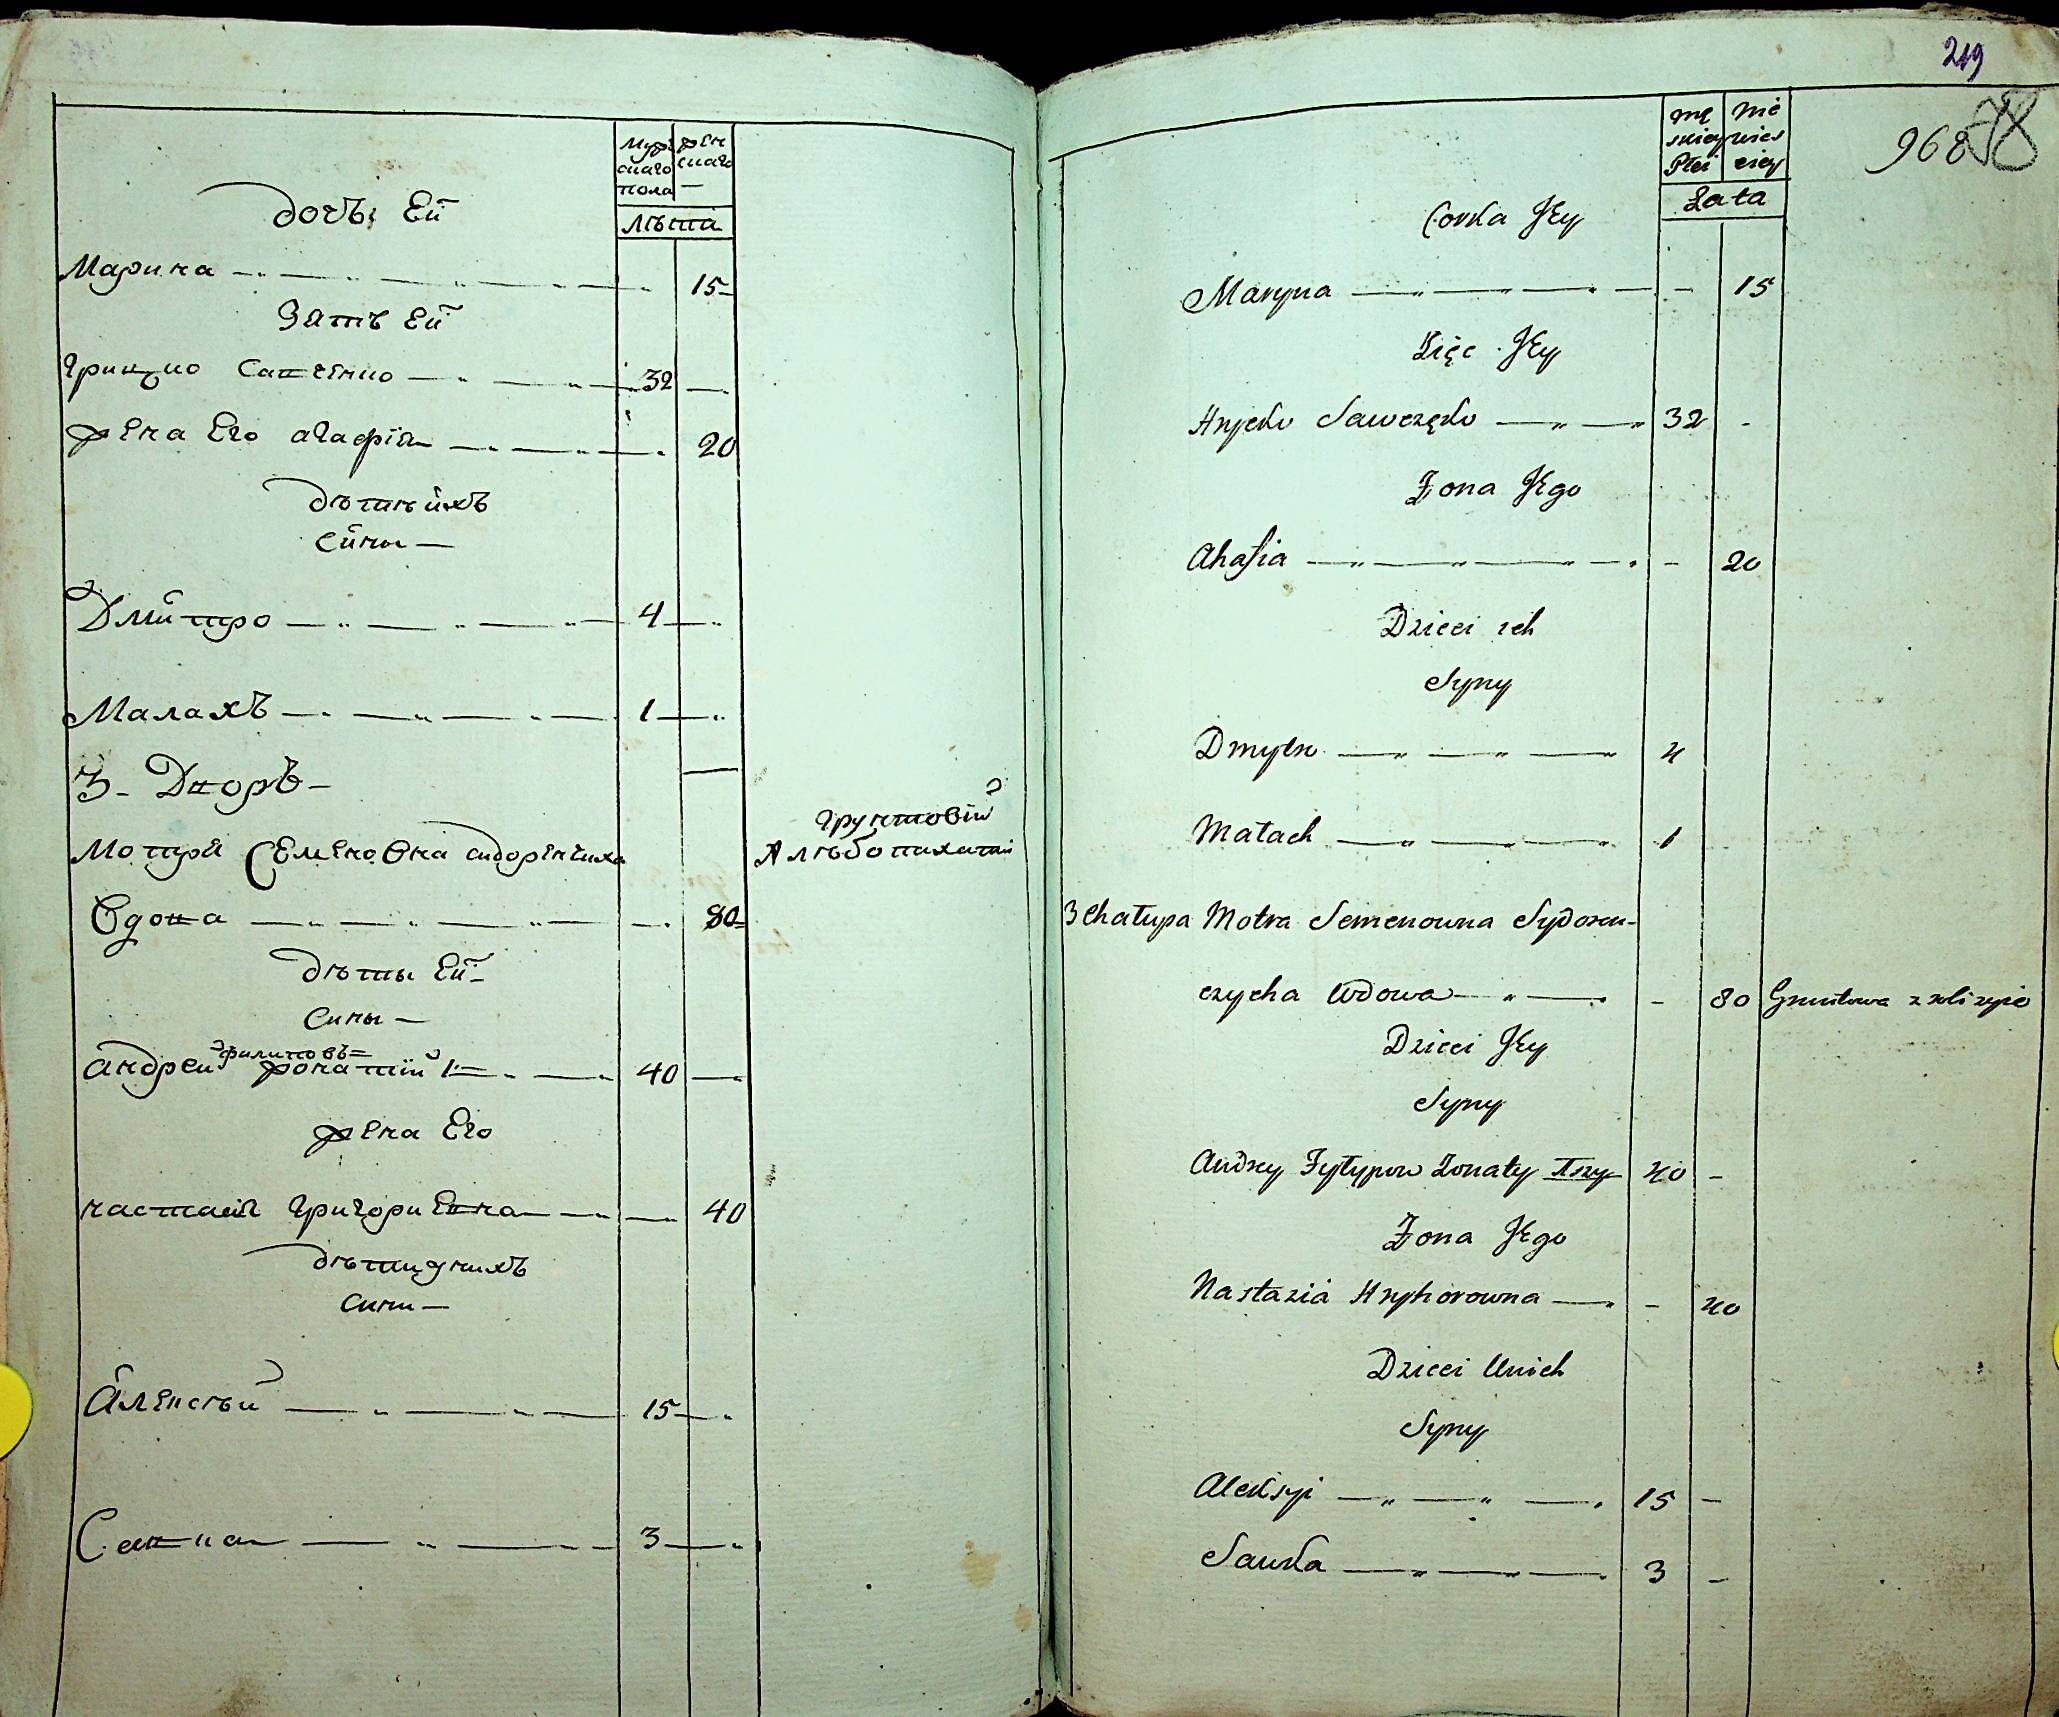 мужскаго пола женскаго
лѣта
дочь Ей
Марина 15
Зять Ей
Грицко Савченко 32
жена Его агафія 20
дѣти ихъ
сины
Дмитро 4
Малахъ 1
3 Дворъ
Мотря Семеновна сидоренчиха
Вдова 80
грунтовій
хлѣбопахатній
дѣты Ей
сины
андрей филиповъ жонатій 1 40
жена Его
настасія григориевна 40
дѣти у нихъ
сини
Алексѣй 15
Савка 3
219
968 78
męskiey Płci Niewiesciey
Lata
Corka Jey
Maryna 15
Zięc Jey
Hrycko Sawczęko 32
Zona Jego
Ahafia 20
Dzieci ich
Syny
Dmytro 4
Małach 1
3 Chałupa Motra Semenowna Sydoren-
czycha Wdowa 80 Gruntowa
Dzieci Jey
Syny
Andrey Fyłypow Zonaty 1szy 40
Zona Jego
Nastazia Hryhorowna 40
Dzieci Unich
Syny
Aleksyi 15
Sawka 3